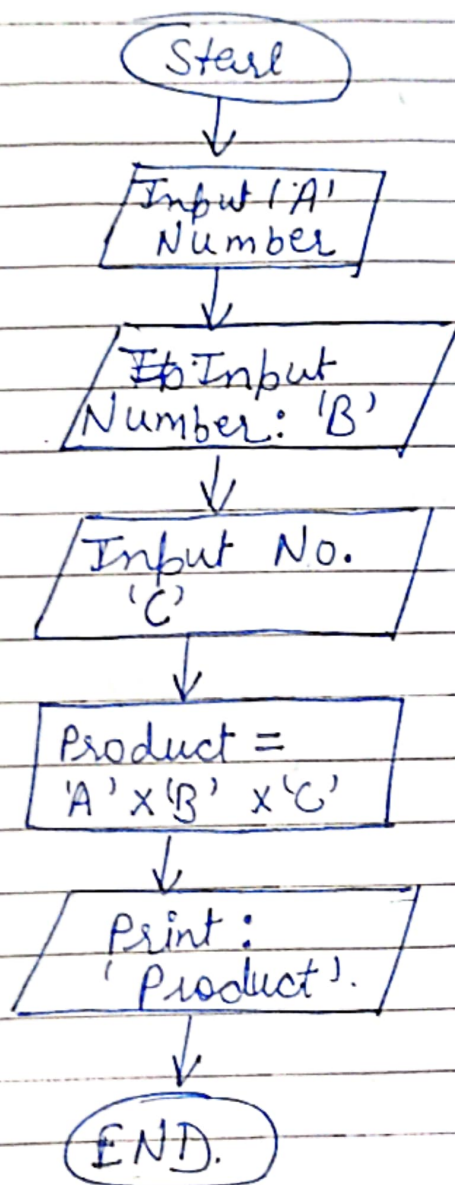 Start
Input 'A'
Number
Input
Number: 'B'
Input No.
'C'
Product =
'A' x 'B' x 'C'
Print:
'Product'.
END.